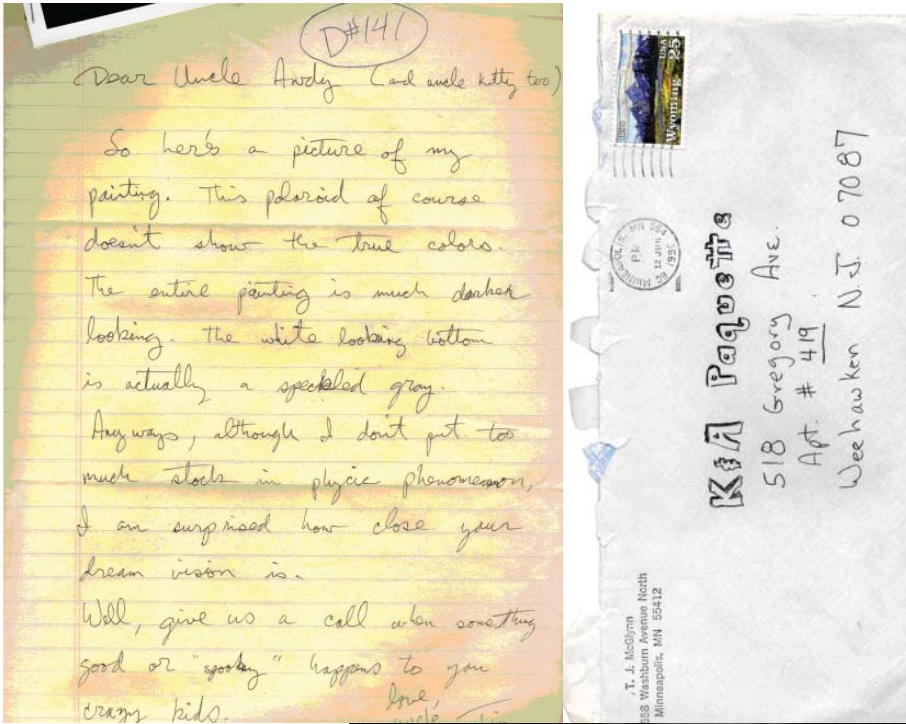 D#141
Dear Uncle Andy (and uncle kitty too)
So here's a picture of my
painting. This polaroid of course
doesn't show the true colors.
The entire painting is much darker
looking. The white looking bottom
is actually a speckled gray.
Anyways, although I don't put too
much stock in phycic phenomenon,
I am surprised how close your
dream vision is.
Well, give us a call when something
good or "spooky" happens to you
crazy kids.
love,
uncle
USA 25
Wyoming
MINNEAPOLIS, MN 554
PM
12 JUN
1990
K&A Paquette
518 Gregory Ave.
Apt. # 419
Weehawken N.J. 07087
T. J. McGlynn
Washburn Avenue North
Minneapolis, MN 55412